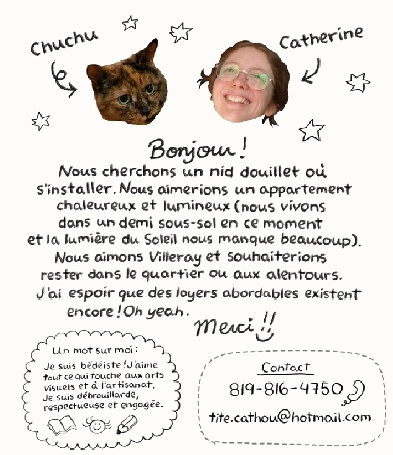 Chuchu
Catherine
Bonjour!
Nous cherchons un nid douillet où
s'installer. Nous aimerions un appartement
chaleureux et lumineux (nous vivons
dans un demi sous-sol en ce moment
et la lumière du Soleil nous manque beaucoup).
Nous aimons Villeray et souhaiterions
rester dans le quartier ou aux alentours.
J'ai espoir que des loyers abordables existent
encore! Oh yeah.
Merci!!
Un mot sur moi:
Je suis bédéiste! J'aime
tout ce qui touche aux arts
visuels et à l'artisanat.
Je suis débrouillarde,
respectueuse et engagée.
Contact
819-816-4750
tite.cathou@hotmail.com